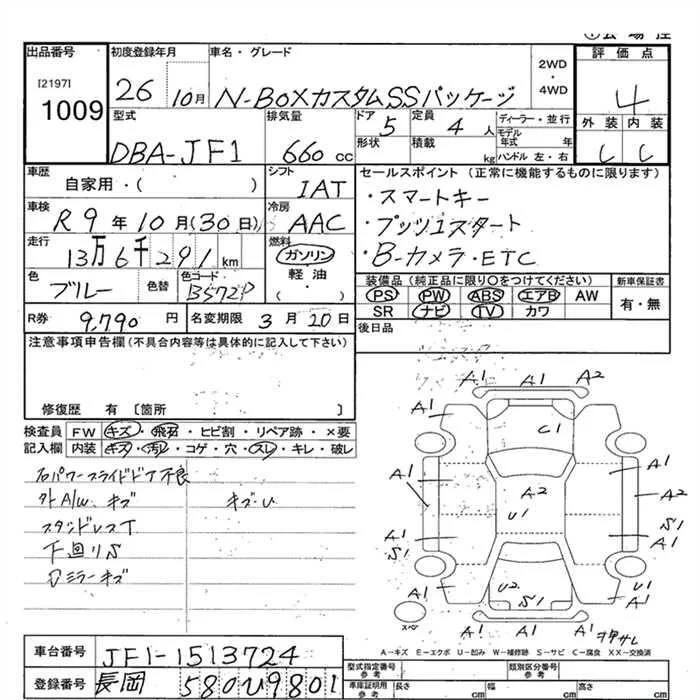 出品番号
[2197]
1009
初度登録年月
26 10月
車名・グレード
N-BOXカスタムSSパッケージ
2WD・4WD
評価点
4
外装 内装
C C
型式
DBA-JF1
排気量
660cc
ドア 5
定員 4人
形状
積載 kg
ディーラー・並行
モデル年式 年
ハンドル 左・右
車歴
自家用・( )
シフト
IAT
車検
R9年10月(30日)
冷房
AAC
走行
13万6千291km
燃料
ガソリン
軽油
( )
色
ブルー
色替
色コード
B572P
R券 9,790円
名変期限 3月20日
セールスポイント(正常に機能するものに限ります)
・スマートキー
・プッシュスタート
・B-カメラ・ETC
装備品(純正品に限り○をつけてください)
PS PW ABS エアB AW
SR ナビ TV カワ
新車保証書
有・無
後日品
注意事項申告欄(不具合内容等は具体的に記入して下さい)
修復歴 有〔箇所 〕
検査員記入欄
FW キズ・飛石・ヒビ割・リペア跡・×要
内装 キズ・汚れ・コゲ・穴・スレ・キレ・破レ
右パワースライドドア不良
外A/W、キズ
キズ・U
スタンドレスT
下回りS
ミラーキズ
A1 A1 A2
A1 A1
C1
A1 A1
A2 A2
U1
A1 S1
S1 A1
U2 S1 U1
A1 A1
スペア
A-キズ E-エクボ U-凹み W-補修跡 S-サビ C-腐食 XX-交換済
車台番号 JF1-1513724
登録番号 長岡 580 U 9801
型式指定番号 参考
類別区分番号 参考
車庫証明用 参考
長さ cm
幅 cm
高さ cm